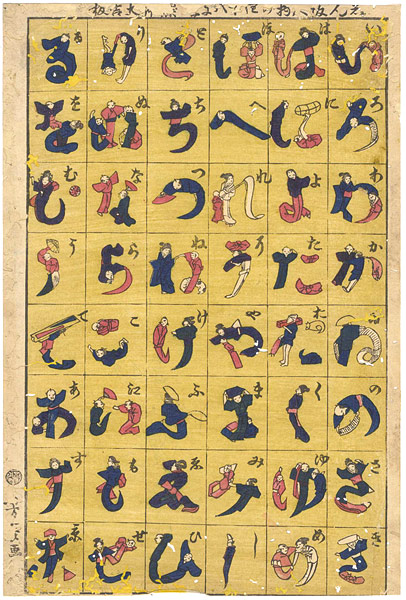 い
ろ
は
に
ほ
へ
と
ち
り
ぬ
る
を
わ
か
よ
た
れ
そ
つ
ね
な
ら
む
う
ゐ
の
お
く
や
ま
け
ふ
こ
江
て
あ
さ
き
ゆ
め
み
し
ゑ
ひ
も
せ
す
京